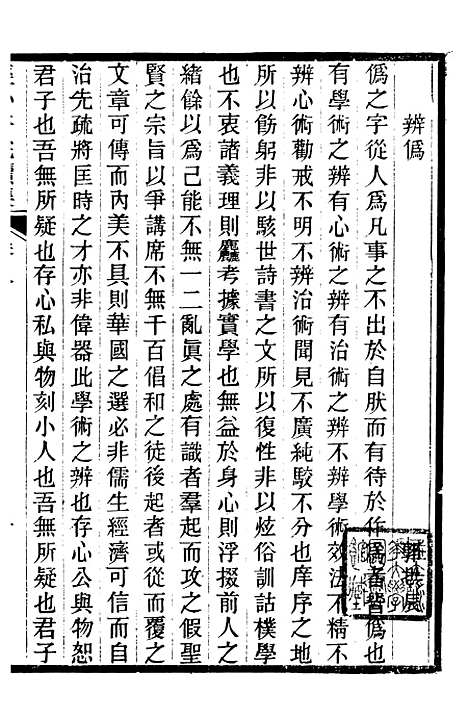 辨僞
僞之字從人爲凡事之不出於自肰而有待於作爲者皆僞也
有學術之辨有心術之辨有治術之辨不辨學術效法不精不
辨心術勸戒不明不辨治術聞見不廣純駁不分也庠序之地
所以飭躬非以駭世詩書之文所以復性非以炫俗訓詁樸學
也不衷諸義理則麤考據實學也無益於身心則浮掇前人之
緒餘以爲己能不無一二亂眞之處有識者羣起而攻之假聖
賢之宗旨以爭講席不無千百倡和之徒後起者從而覆之
文章可傳而內美不具則華國之選必非儒生經濟可信而自
治先疏將匡時之才亦非偉器此學術之辨也存心公與物恕
君子也吾無所疑也存心私與物刻小人也吾無所疑也君子